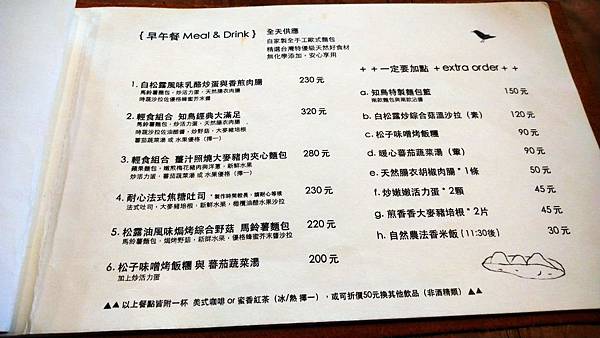 { 早午餐 Meal & Drink }
全天供應
自家製全手工歐式麵包
精選台灣特優級天然好食材
無化學添加，安心享用
1. 白松露風味乳酪炒蛋與香煎肉腸 230 元
馬鈴薯麵包，炒活力蛋，天然腸衣肉腸
時蔬沙拉佐優格蜂蜜芥末醬
2. 輕食組合 知鳥經典大滿足 320 元
馬鈴薯麵包，炒活力蛋，天然腸衣肉腸，
時蔬沙拉佐油醋醬，炒野菇，大麥豬培根
蕃茄蔬菜湯 或 水果優格（擇一）
3. 輕食組合 薑汁照燒大麥豬肉夾心麵包 280 元
蘋果麵包，嫩煎梅花豬肉與洋蔥，新鮮水果
炒活力蛋，蕃茄蔬菜湯 或 水果優格（擇一）
4. 耐心法式焦糖吐司 *製作時間較長，請耐心等候 230元
法式吐司，大麥豬培根，新鮮水果，橄欖油醋水果沙拉
5. 松露油風味焗烤綜合野菇 馬鈴薯麵包 220 元
馬鈴薯麵包，焗烤野菇，新鮮水果，優格蜂蜜芥末醬沙拉
6. 松子味噌烤飯糰 與 蕃茄蔬菜湯 200 元
加上炒活力蛋
+ + 一定要加點 + extra order + +
a. 知鳥特製麵包籃 150 元
兩款麵包與兩款沾醬
b. 白松露炒綜合菇溫沙拉（素） 120 元
c. 松子味噌烤飯糰 90 元
d. 暖心蕃茄蔬菜湯（葷） 90 元
e. 天然腸衣胡椒肉腸 * 1條 50 元
f. 炒嫩嫩活力蛋 * 2顆 45 元
g. 煎香香大麥豬培根 * 2片 45 元
h. 自然農法香米飯（11:30後） 30 元
▲▲ 以上餐點皆附一杯 美式咖啡 or 蜜香紅茶（冰/熱 擇一），或可折價50元換其他飲品（非酒精類）▲▲